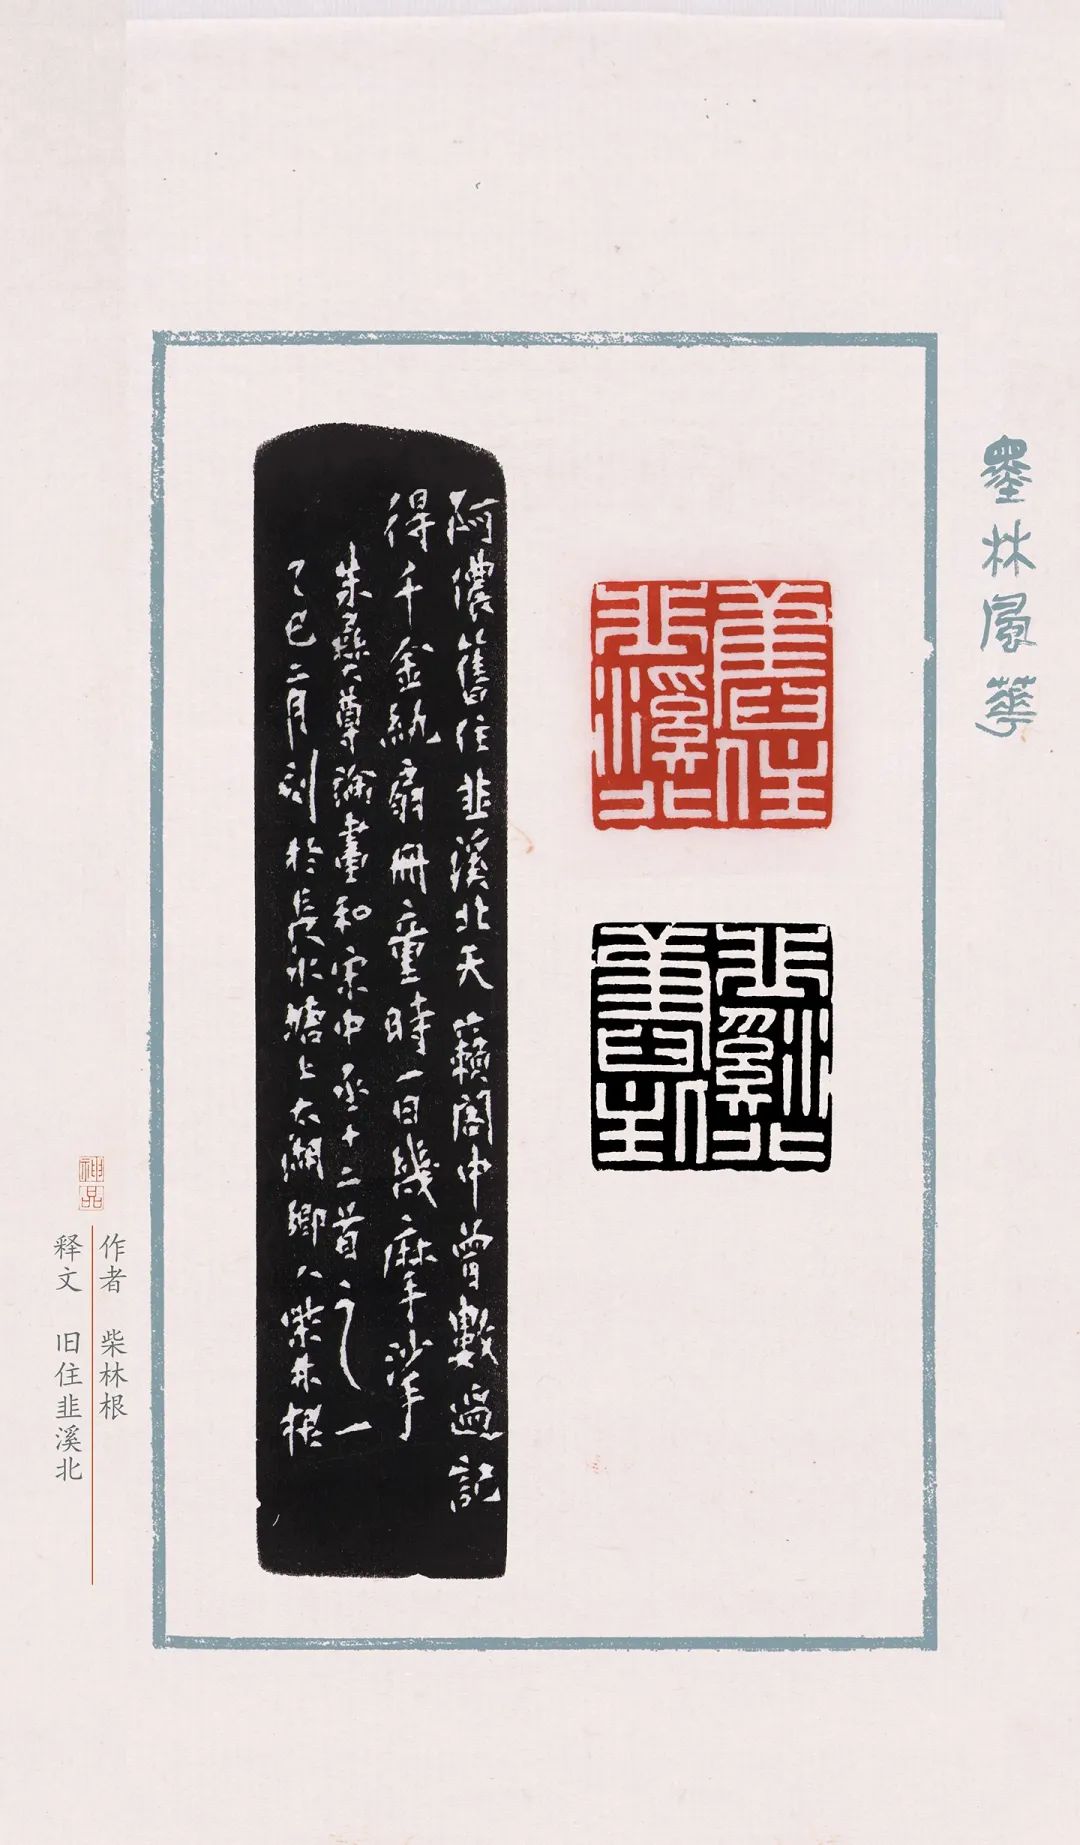 墨林風華
舊住
韭溪北
阿儂舊住韭溪北天籟閣中曾數過記
得千金紈扇冊童時一日幾摩挲
朱彝尊論畫和宋中丞十二首之一
乙巳二月刻於長水塘上大湖鄉人柴林根
神品
作者 柴林根
释文 旧住韭溪北